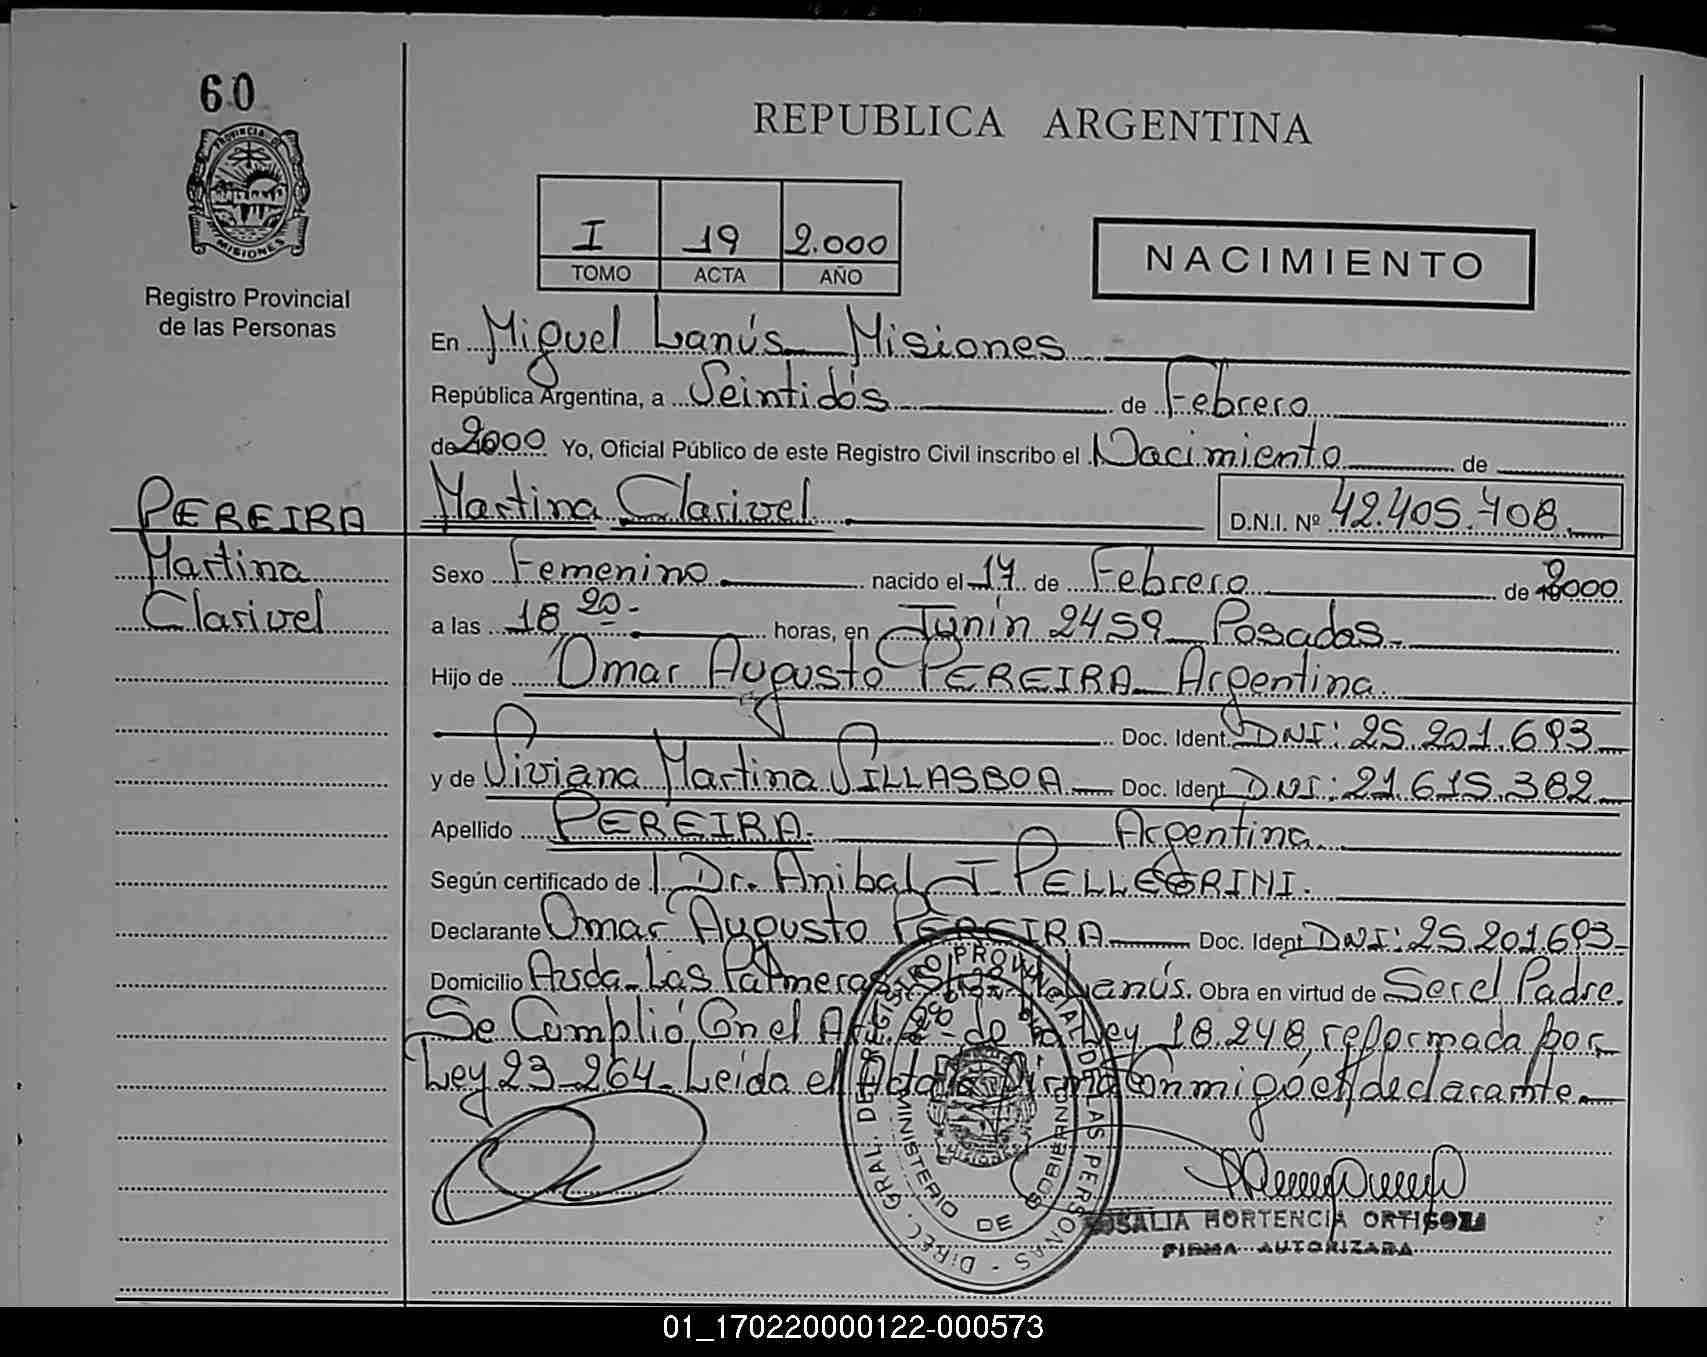 60
PROVINCIA DE
MISIONES
Registro Provincial
de las Personas
REPUBLICA ARGENTINA
I 19 2.000
TOMO ACTA AÑO
NACIMIENTO
En Miguel Lanús Misiones
República Argentina, a Veintidós de Febrero
de 2000 Yo, Oficial Público de este Registro Civil inscribo el Nacimiento de
PEREIRA
Martina Clarivel D.N.I. Nº 42.405.708.
Martina
Clarivel
Sexo Femenino nacido el 17 de Febrero de 2000
a las 18 20- horas, en Junín 2459 Posadas-
Hijo de Omar Augusto PEREIRA Argentina
Doc. Ident. DNI: 25.201.693
y de Viviana Martina VILLASBOA Doc. Ident. DNI: 21.615.382
Apellido PEREIRA. Argentina
Según certificado de Dr. Anibal J PELLEGRINI.
Declarante Omar Augusto PEREIRA Doc. Ident. DNI: 25.201.693
Domicilio Avda. Las Palmeras Lanús. Obra en virtud de Ser el Padre.
Se Cumplió Con el Art. 2- de la Ley 18.248, reformada por
Ley 23-264. Leída el Acta Firma Conmigo el declarante.
DIREC. GRAL. DE REGISTRO PROVINCIAL DE LAS PERSONAS
MINISTERIO DE GOBIERNO
MISIONES
ROSALIA HORTENCIA ORTIGOZA
FIRMA AUTORIZADA
01_170220000122-000573